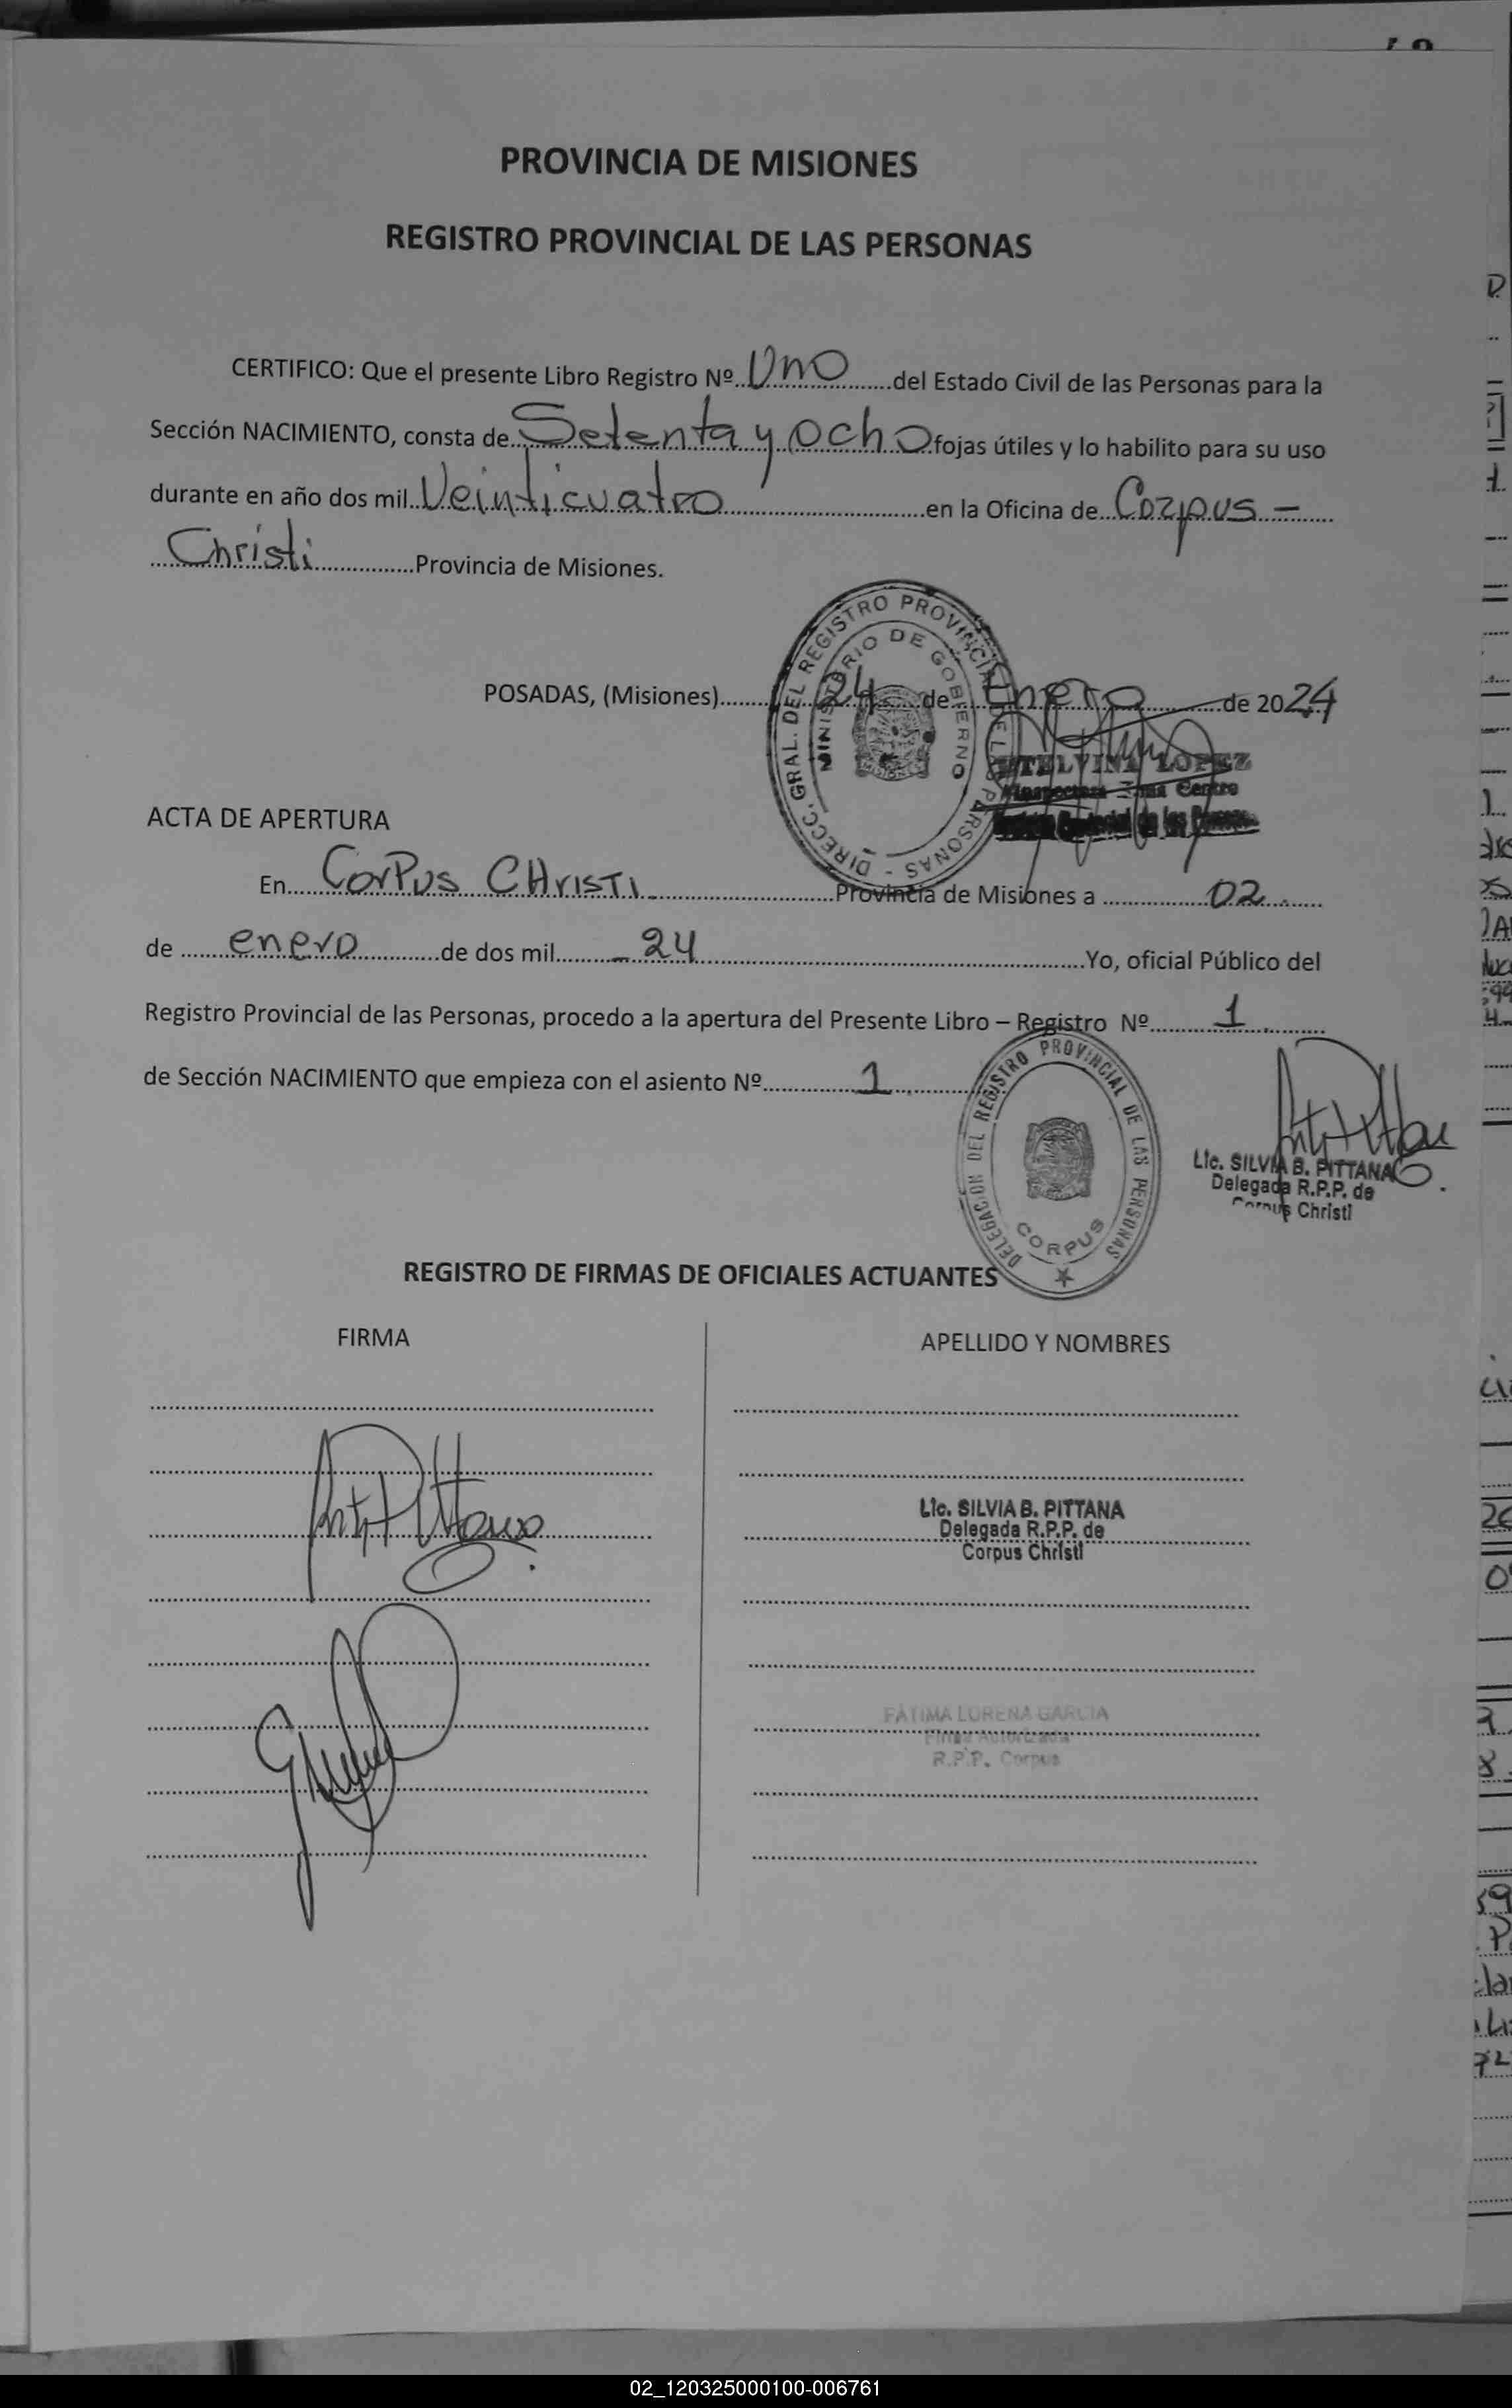 PROVINCIA DE MISIONES
REGISTRO PROVINCIAL DE LAS PERSONAS
CERTIFICO: Que el presente Libro Registro Nº Uno del Estado Civil de las Personas para la
Sección NACIMIENTO, consta de Setenta y ocho fojas útiles y lo habilito para su uso
durante en año dos mil Veinticuatro en la Oficina de Corpus –
Christi Provincia de Misiones.
POSADAS, (Misiones) 24 de Enero de 2024
DIRECC. GRAL. DEL REGISTRO PROVINCIAL DE LAS PERSONAS -
MINISTERIO DE GOBIERNO
LOPEZ
Centro
ACTA DE APERTURA
En CorPus CHristi Provincia de Misiones a 02
de enero de dos mil – 24 Yo, oficial Público del
Registro Provincial de las Personas, procedo a la apertura del Presente Libro – Registro Nº 1
de Sección NACIMIENTO que empieza con el asiento Nº 1
DELEGACION DEL REGISTRO PROVINCIAL DE LAS PERSONAS
CORPUS
Lic. SILVIA B. PITTANA
Delegada R.P.P. de
Corpus Christi
REGISTRO DE FIRMAS DE OFICIALES ACTUANTES
FIRMA
APELLIDO Y NOMBRES
Lic. SILVIA B. PITTANA
Delegada R.P.P. de
Corpus Christi
FÁTIMA LORENA GARCIA
Firma Autorizada
R.P.P. Corpus
02_120325000100-006761